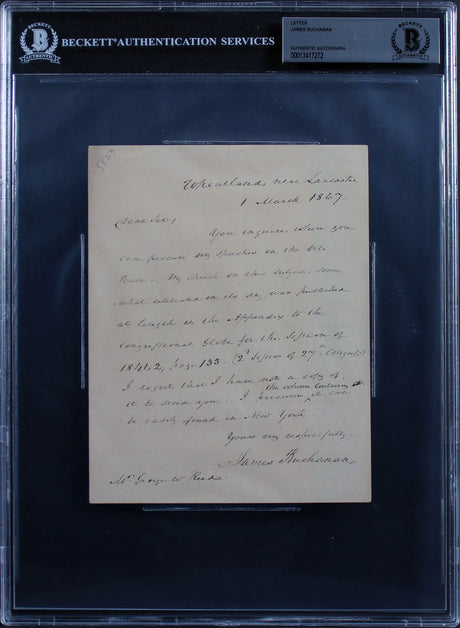 BECKETT® AUTHENTICATION SERVICES
BECKETT AUTHENTICATION SERVICES
LETTER
JAMES BUCHANAN
AUTHENTIC AUTOGRAPH
00013417272
BECKETT AUTHENTICATION SERVICES
Wheatland, near Lancaster
1 March 1867.
Dear Sir,
You enquire where you
can procure my speeches on the Veto
Power. My speech on this subject, some
what celebrated in its day, was published
at length in the Appendix to the
Congressional Globe for the Session of
1841,2, page 133. (2d Session of 27th Congress)
I regret that I have not a copy of
it to send you. I presume the volume containing it can
be easily found in New York.
Yours very respectfully,
James Buchanan
Mr. George W. Read